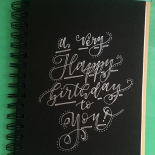 a very
Happy
birthday
to
You